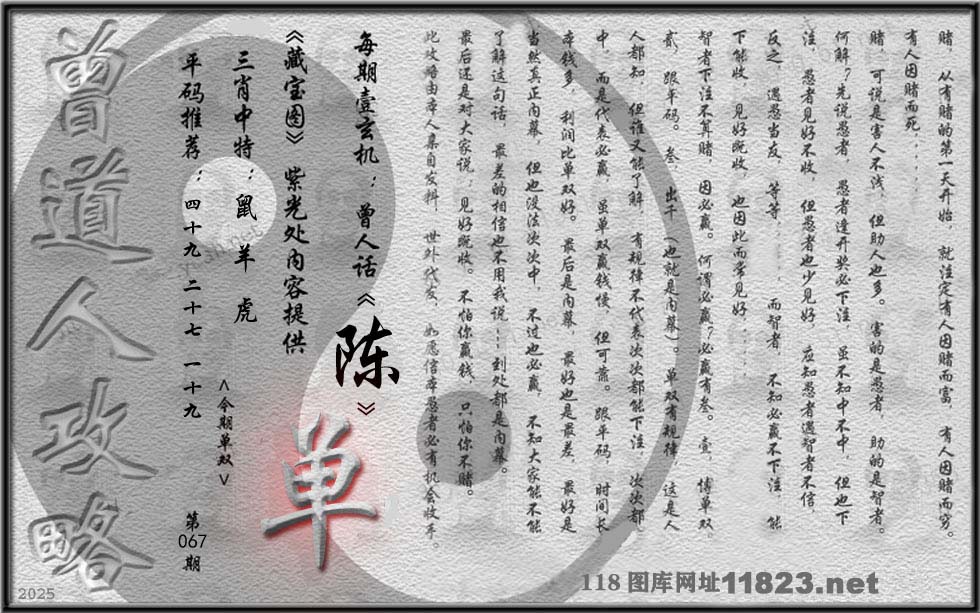 赌，从有赌的第一天开始，就注定有人因赌而富，有人因赌而穷。
有人因赌而死．．．．．．
赌，可说是害人不浅，但助人也多。害的是愚者，助的是智者。
何解？先说愚者，愚者逢开奖必下注，虽不知中不中，但也下
注，愚者见好不收，但愚者也少见好，应知愚者遇智者不信，
反之，遇愁当友，等等．．．．．．而智者，不知必赢不下注，能
下能收，见好既收，也因此而常见好．．．．．．
智者下注不算赌，因必赢。何谓必赢？必赢有叁。壹，博单双，
贰，跟平码。叁，出千（也就是内幕）。单双有规律，这是人
人都知，但谁又能了解，有规律不代表次次都能下注，次次都
中，而是代表必赢，虽单双赢钱慢，但可靠。跟平码，时间长，
本钱多，利润比单双好。最后是内幕，最好也是最差，最好是
当然真正内幕，但也没法次次中，不过也必赢，不知大家能不能
了解这句话，最差的相信也不用我说┅到处都是内幕。
最后还是对大家说：见好既收。不怕你赢钱，只怕你不赌。
此攻略由本人集自发料，世外代友，如愿信本愚者必有机会收手。
每期壹玄机：曾人话《陈》
《藏宝图》紫光处内容提供
三肖中特：鼠 羊 虎
平码推荐：四十九 二十七 一十九
<今期单双>
单
第
067
期
曾道人攻略
2025
118 图库网址11823.net